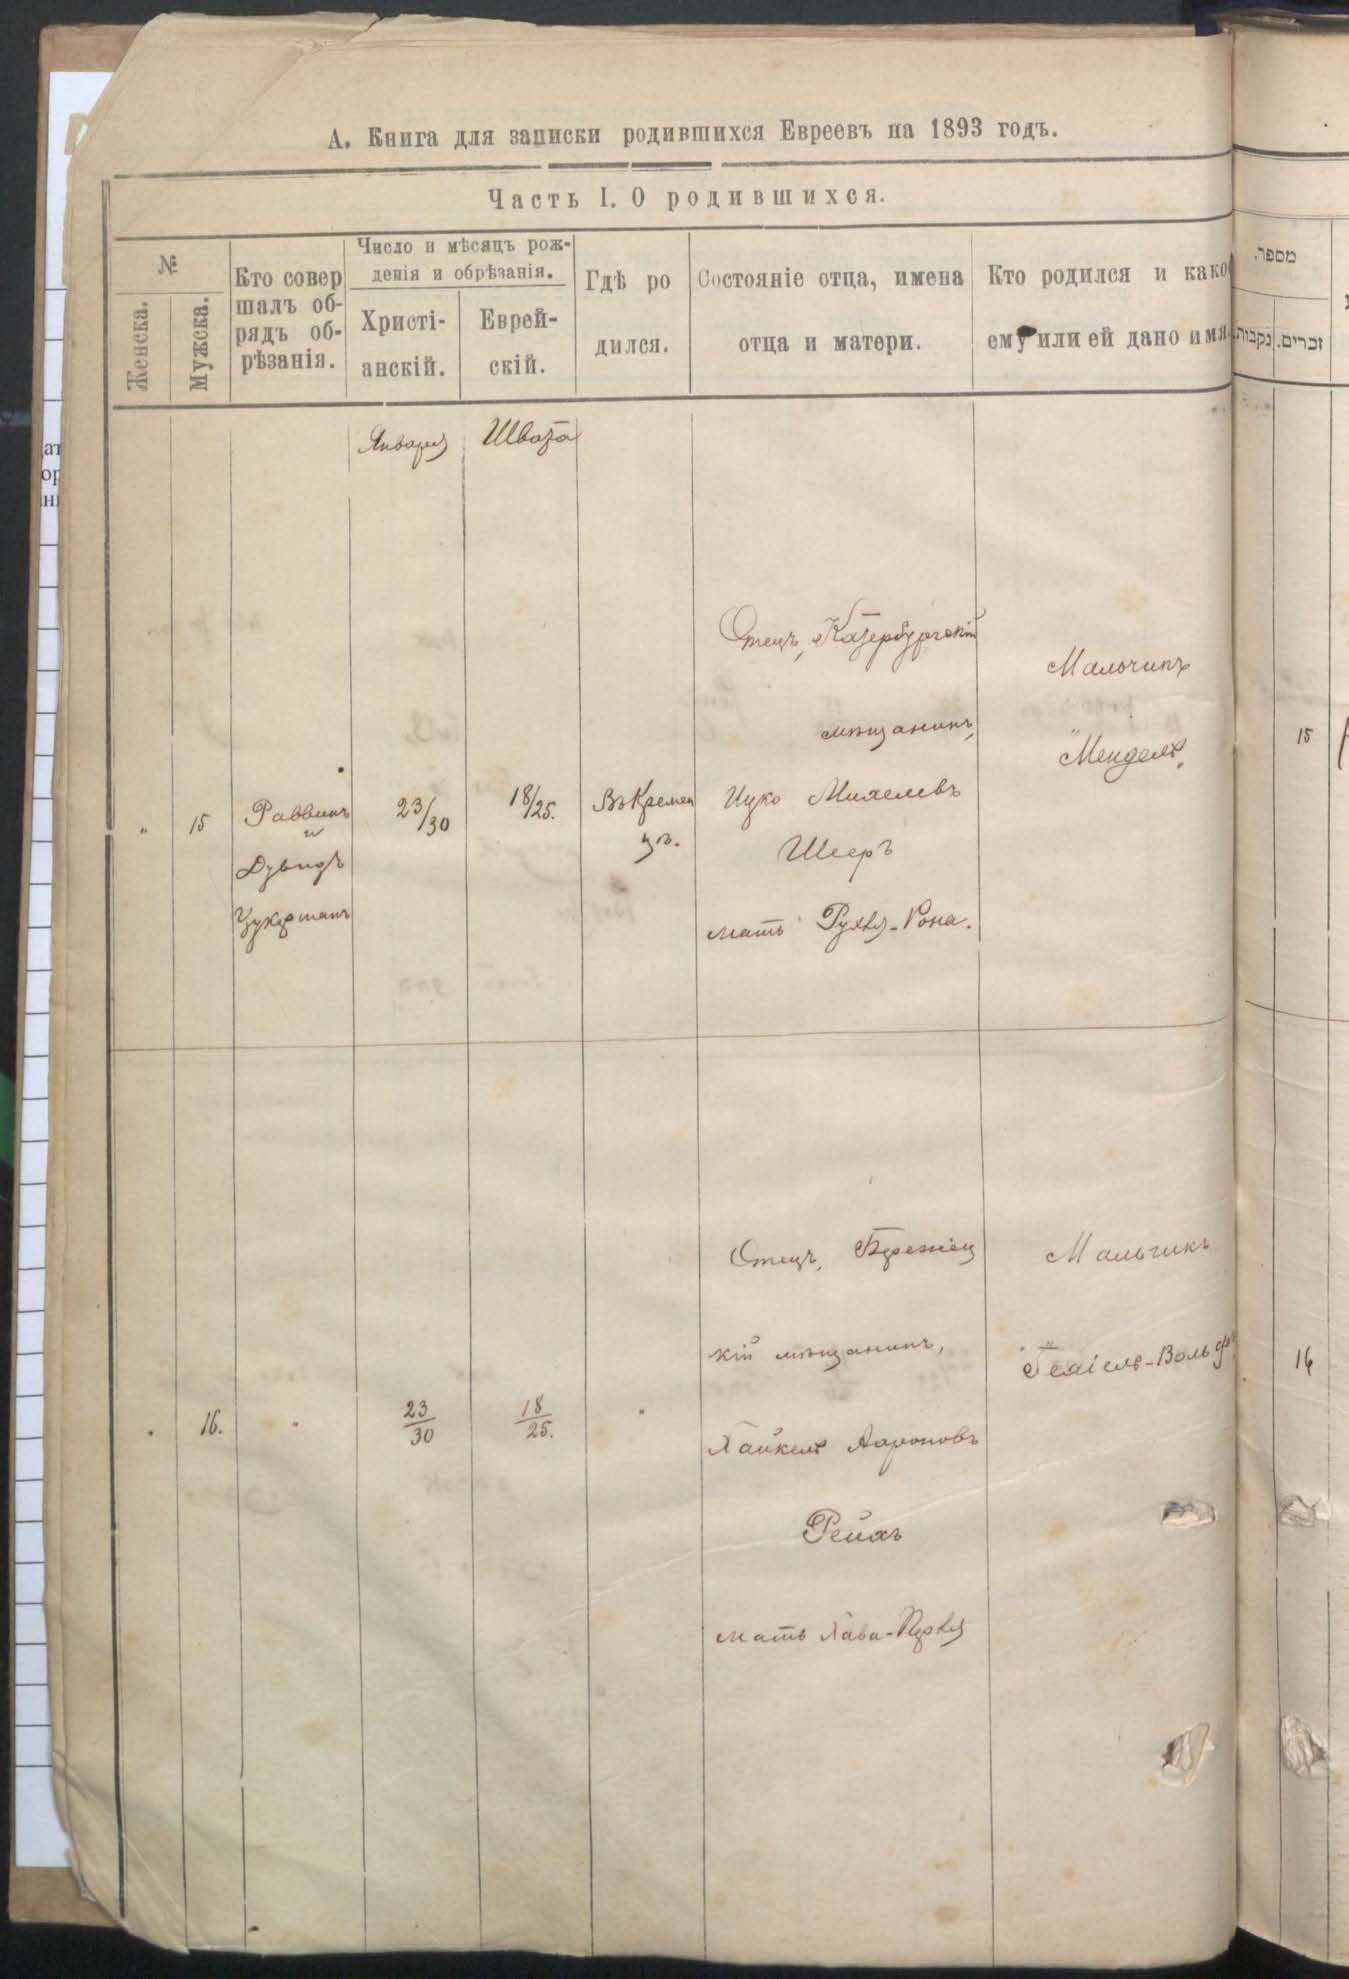 А. Книга для записки родившихся Евреевъ на 1893 годъ.
Часть I. О родившихся.
№
Женска.
Мужска.
Кто совер
шалъ об-
рядъ об-
рѣзанія.
Число и мѣсяцъ рож-
денія и обрѣзанія.
Христі-
анскій.
Еврей-
скій.
Гдѣ ро
дился.
Состояніе отца, имена
отца и матери.
Кто родился и како
ему или ей дано имя.
מספר.
נקבות.
זכרים.
Января
Швата
"
15
Раввинъ
и
Дувидъ
Цукерманъ
23/30
18/25.
Въ Кремен
цѣ.
Отецъ, Катербургскій
мѣщанинъ,
Ицко Михелевъ
Шееръ
мать Рухля-Рона.
Мальчикъ
"Мендель"
15
16.
"
23
30
18
25.
"
Отецъ, Бережец
кій мѣщанинъ,
Хайкель Ароновъ
Рейхъ
мать Хава-
Мальчикъ
-Вольфъ
16